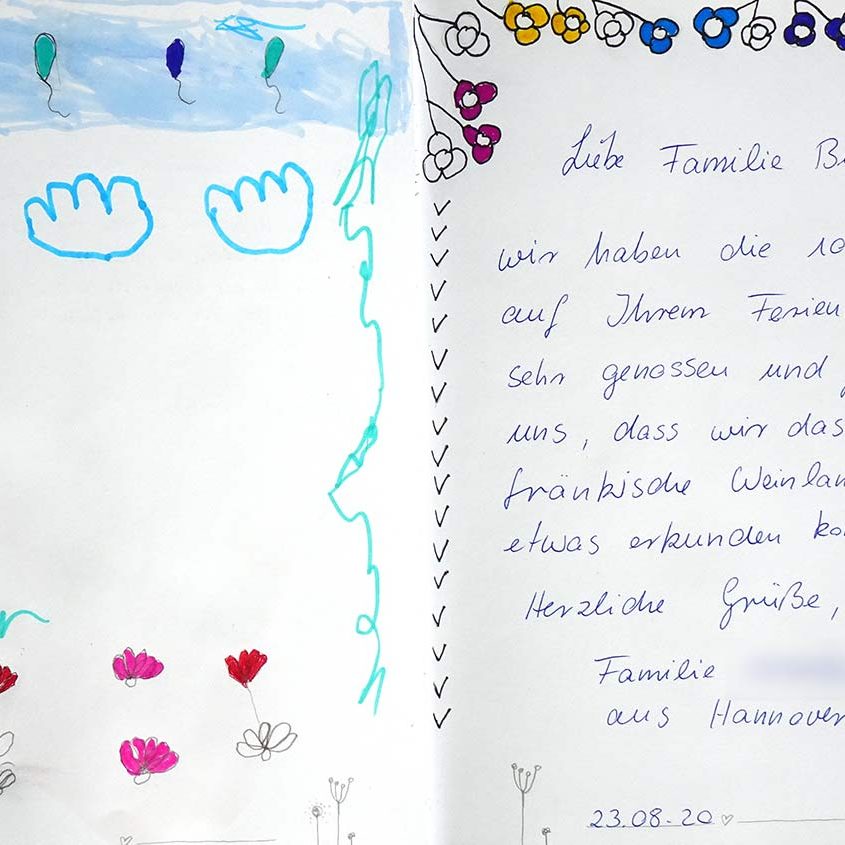 Liebe Familie B
wir haben die 10
auf Ihrem Ferien
sehr genossen und
uns, dass wir das
fränkische Weinlan
etwas erkunden ko
Herzliche Grüße,
Familie
aus Hannover
23.08.20